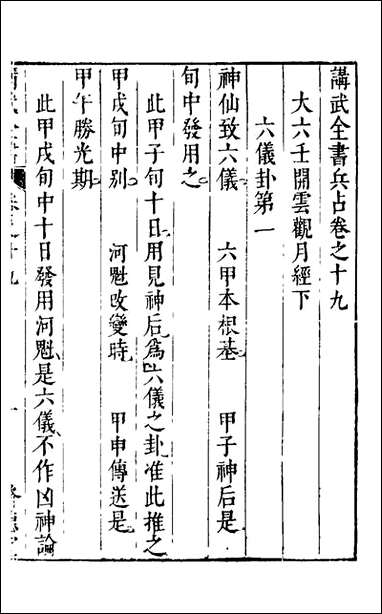 講武全書兵占卷之十九
大六壬開雲觀月經下
六儀卦第一
神仙致六儀 六甲本根基 甲子神后是
旬中發用之
此甲子旬十日用見神后爲六儀之卦准此推之
甲戌旬中别 河魁改變時 甲申傳送是
甲午勝光期
此甲戌旬中十日發用河魁是六儀不作凶神論